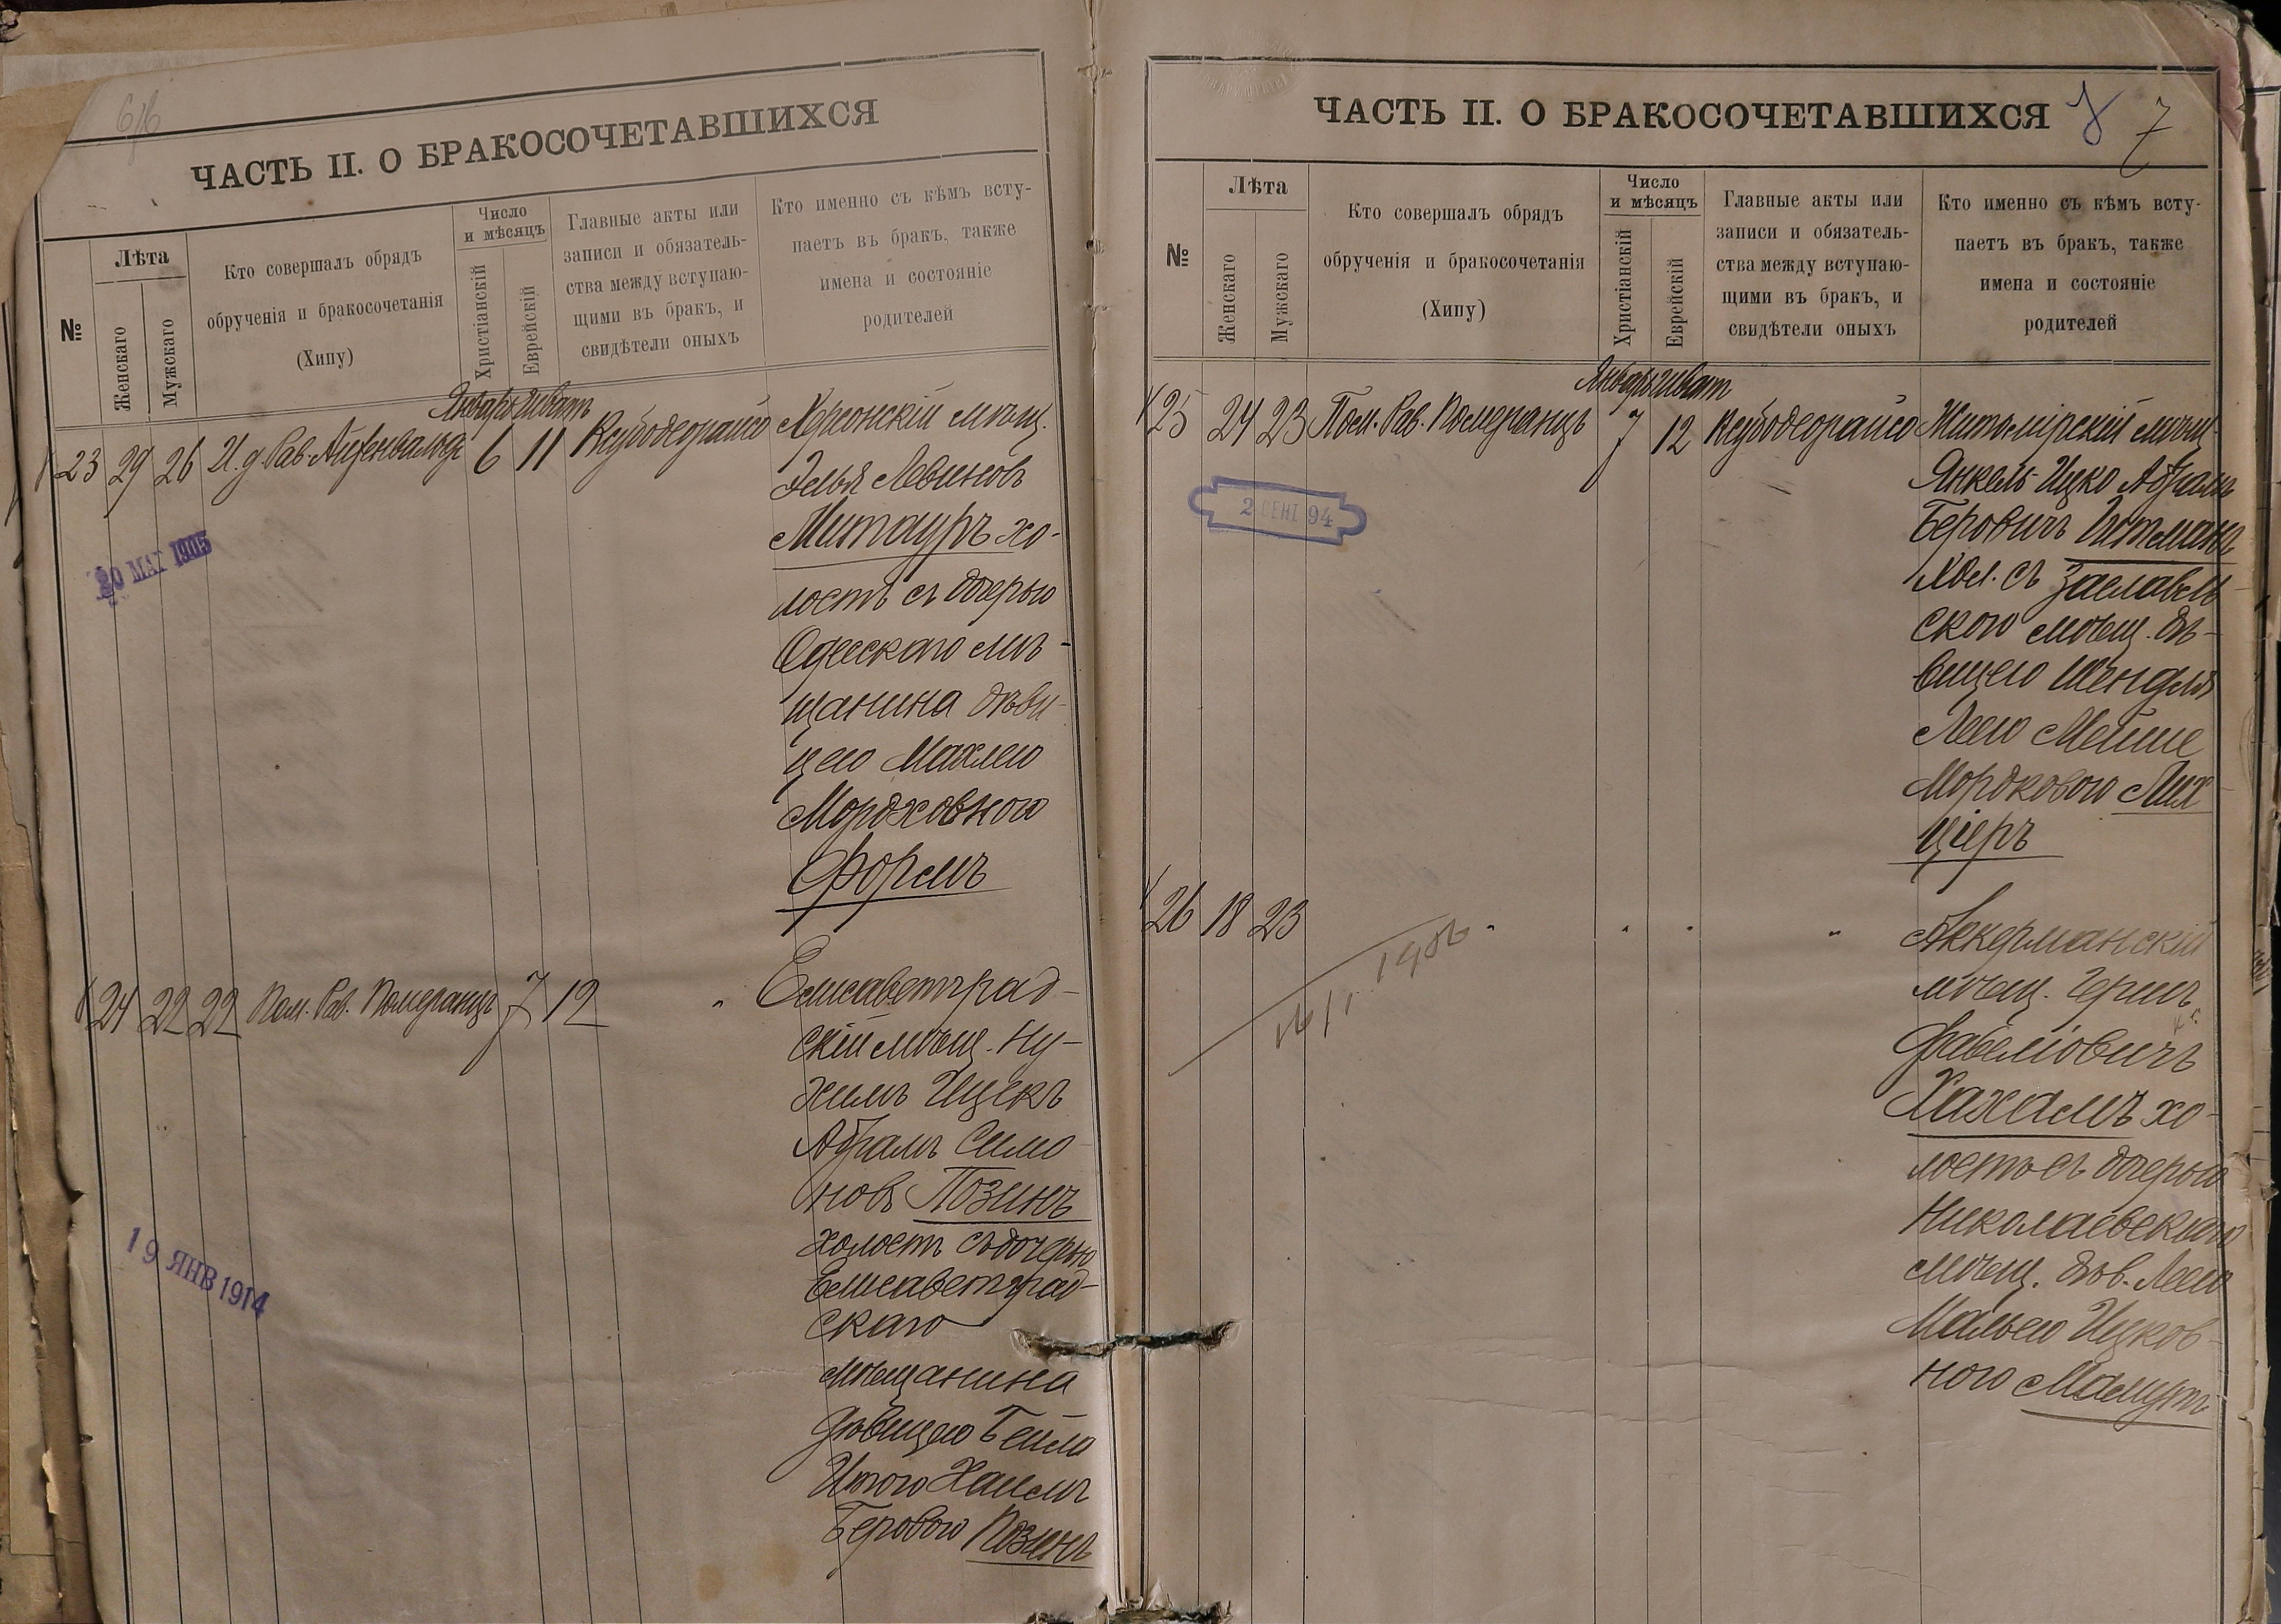 ЧАСТЬ II. О БРАКОСОЧЕТАВШИХСЯ
№
Лѣта
Женскаго
Мужскаго
Кто совершалъ обрядъ
обрученія и бракосочетанія
(Хипу)
Число
и мѣсяцъ
Христіанскій
Еврейскій
Главные акты или
записи и обязатель-
ства между вступаю-
щими въ бракъ, и
свидѣтели оныхъ
Кто именно съ кѣмъ всту-
паетъ въ бракъ, также
имена и состояніе
родителей
Январь Шватъ
23 29 26 И. д. Рав. Айзенвальдъ 6 11 Ксубодеорайсо Херсонскій мѣщ.
Элья Левиновъ
Митауръ хо-
лостъ съ дочерью
Одесскаго мѣ-
щанина дѣви-
цею Махлею
Мордховною
Формъ
20 МАІ 1905
24 22 22 Пом. Рав. Померанцъ 7 12 „ Елисаветград-
скій мѣщ. Ну-
химъ Ицекъ
Абрамъ Симо
новъ Позинъ
холостъ съ дочерью
Елисаветград-
скаго
мѣщанина
дѣвицею Бейла
Итою Хаимъ
Беровою Позинъ
19 ЯНВ 1914
ЧАСТЬ II. О БРАКОСОЧЕТАВШИХСЯ
7
№
Лѣта
Женскаго
Мужскаго
Кто совершалъ обрядъ
обрученія и бракосочетанія
(Хипу)
Число
и мѣсяцъ
Христіанскій
Еврейскій
Главные акты или
записи и обязатель-
ства между вступаю-
щими въ бракъ, и
свидѣтели оныхъ
Кто именно съ кѣмъ всту-
паетъ въ бракъ, также
имена и состояніе
родителей
Январь Шватъ
25 24 23 Пом. Рав. Померанцъ 7 12 Ксубодеорайсо Житомірскій мѣщ.
Янкель Ицко Абрамъ
Беровичъ
Хол. съ Заславль
скою мѣщ. дѣ-
вицею Шендля
Леею Мейше
Мордковою Лих
циръ
2 СЕНТ 94
26 18 23 „ „ „ „ Аккерманскій
мѣщ. Гершъ
Файвеліовичъ
Хахамъ хо-
лостъ съ дочерью
Николаевскаго
мѣщ. дѣв. Леею
Малею Ицков-
ною Мамутъ
16/I 1906